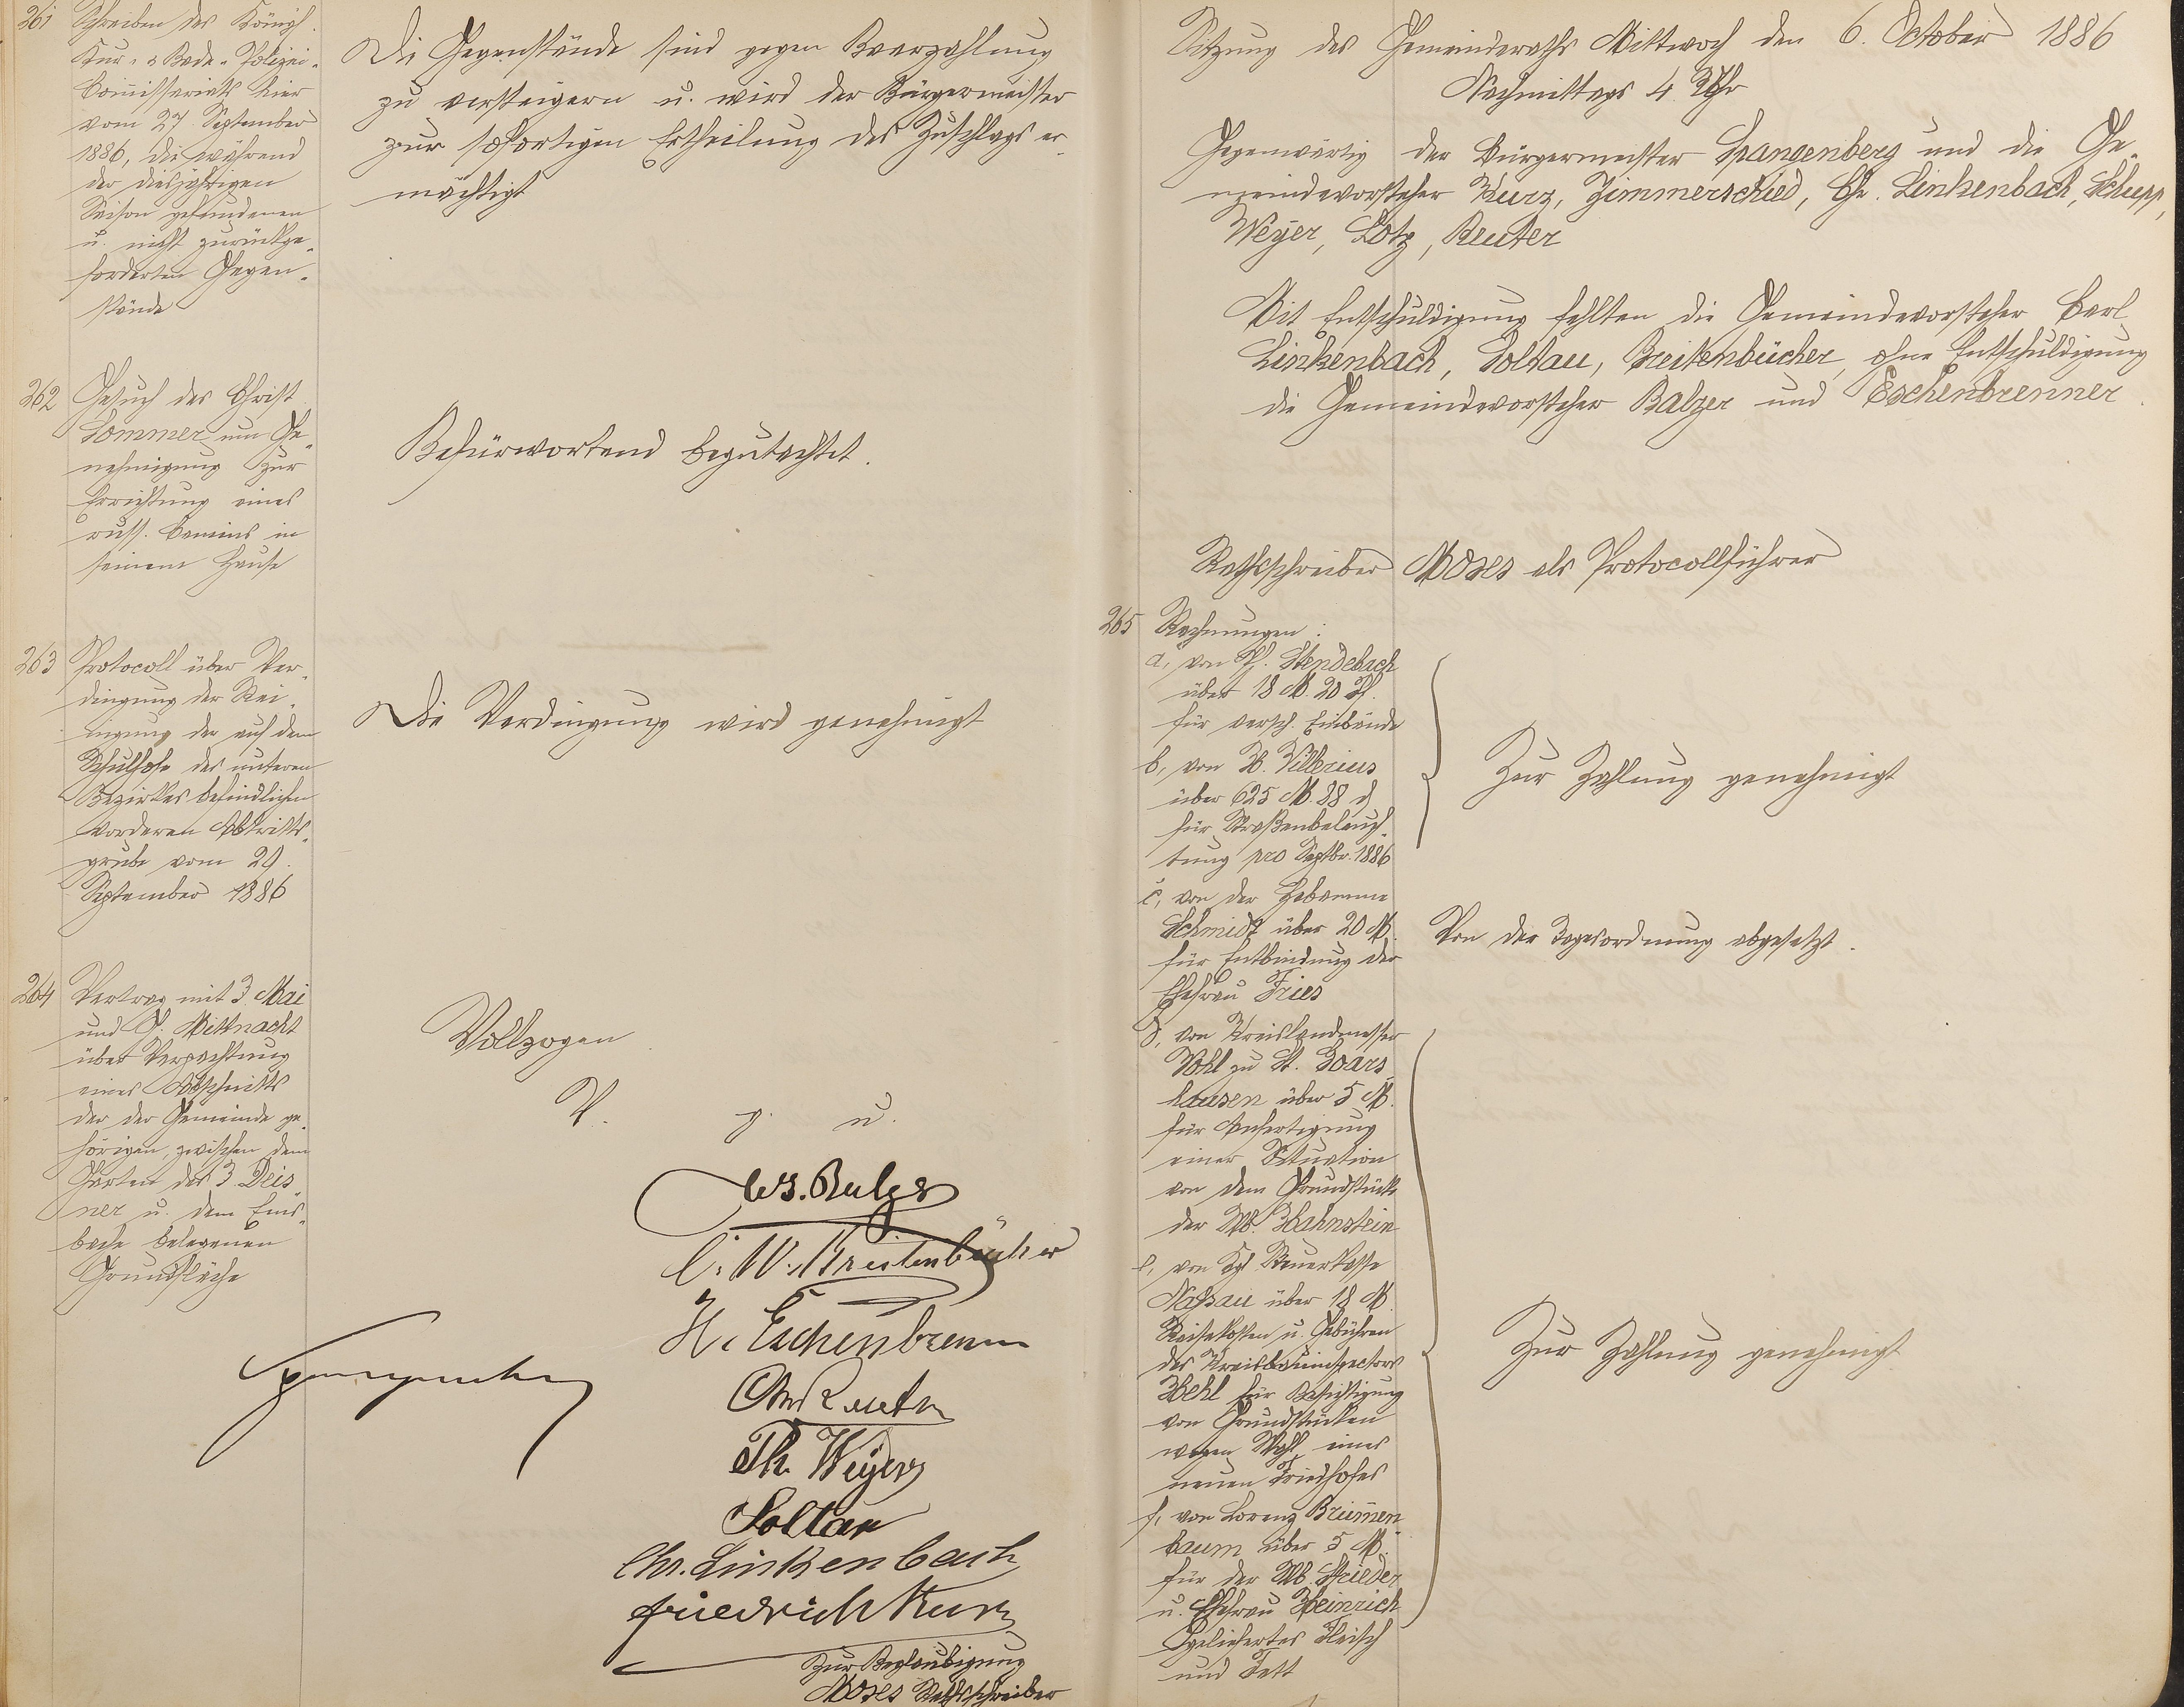 261
Schreiben des Königl.
Kur- & Bade-Polizei-
Commissariats hier
vom 27. September
1886, die während
der diesjährigen
Saison gefundenen
u. nicht zurückge-
forderten Gegen-
stände
Die Gegenstände sind gegen Baarzahlung
zu versteigern u. wird der Bürgermeister
zur sofortigen Ertheilung des Zuschlags er-
mächtigt
262
Gesuch des Christ.
Sommer um Ge-
nehmigung zur
Errichtung eines
russ. Kamins in
seinem Hause
Befürwortend begutachtet.
263
Protocoll über Ver-
dingung der Rei-
nigung der auf dem
Schulhofe des unteren
Bezirkes befindlichen
vorderen Abtritts-
grube vom 29.
September 1886
Die Verdingung wird genehmigt
264
Vertrag mit J. Mai
und G. Mittnacht
über Verpachtung
eines Abschnitts
der der Gemeinde ge-
hörigen, zwischen dem
Garten des J. Deis-
ner u. dem Ems-
bache belegenen
Grundfläche
Vollzogen
V. g. u.
C. W. Breitenbücher
H. Eschenbrenn
Chr Reuter
Th. Weyer
Soltau
Chr. Linkenbach
Friedrich Kurz
Spangenberg
Zur Beglaubigung
Moses Rathsschreiber
Sitzung des Gemeinderaths Mittwoch den 6. October 1886
Nachmittags 4 Uhr
Gegenwärtig der Bürgermeister Spangenberg und die Ge-
meindevorsteher Kurz, Zimmerschied, Chr. Linkenbach, Schupp,
Weyer, Lotz, Reuter
Mit Entschuldigung fehlten die Gemeindevorsteher Carl
Linkenbach, Soltau, Breitenbücher, ohne Entschuldigung
die Gemeindevorsteher Balzer und Eschenbrenner.
Rathsschreiber Moses als Protocollführer
265
Rechnungen:
a, von Ph. Stendebach
über 18 M. 20 Pf.
für versch. Einbände
b, von H. Villerius
über 625 M. 88 d
für Straßenbeleuch-
tung pro Septbr. 1886
Zur Zahlung genehmigt
c, von der Hebamme
Schmidt über 20 M.
für Entbindung der
Ehefrau Fries
Von der Tagesordnung abgesetzt.
d, von Kreislandmesser
Vohl zu St. Goars-
hausen über 5 M.
für Anfertigung
einer Situation
von dem Grundstücke
der Wb. Hahnstein
e, von Kgl. Steuerkasse
Nassau über 18 M.
Reisekosten u. Gebühren
des Kreisbauinspectors
Hehl für Besichtigung
von Grundstücken
wegen Wahl eines
neuen Friedhofes
f, von Lorenz Brümen-
baum über 5 M.
für der Wb. Strieder
u. Ehefrau Heinrich
geliefertes Fleisch
und Fett
Zur Zahlung genehmigt